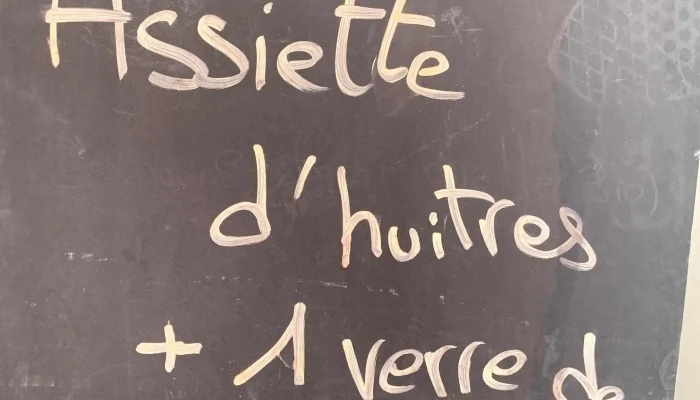 Assiette
d'huitres
+ 1 verre de